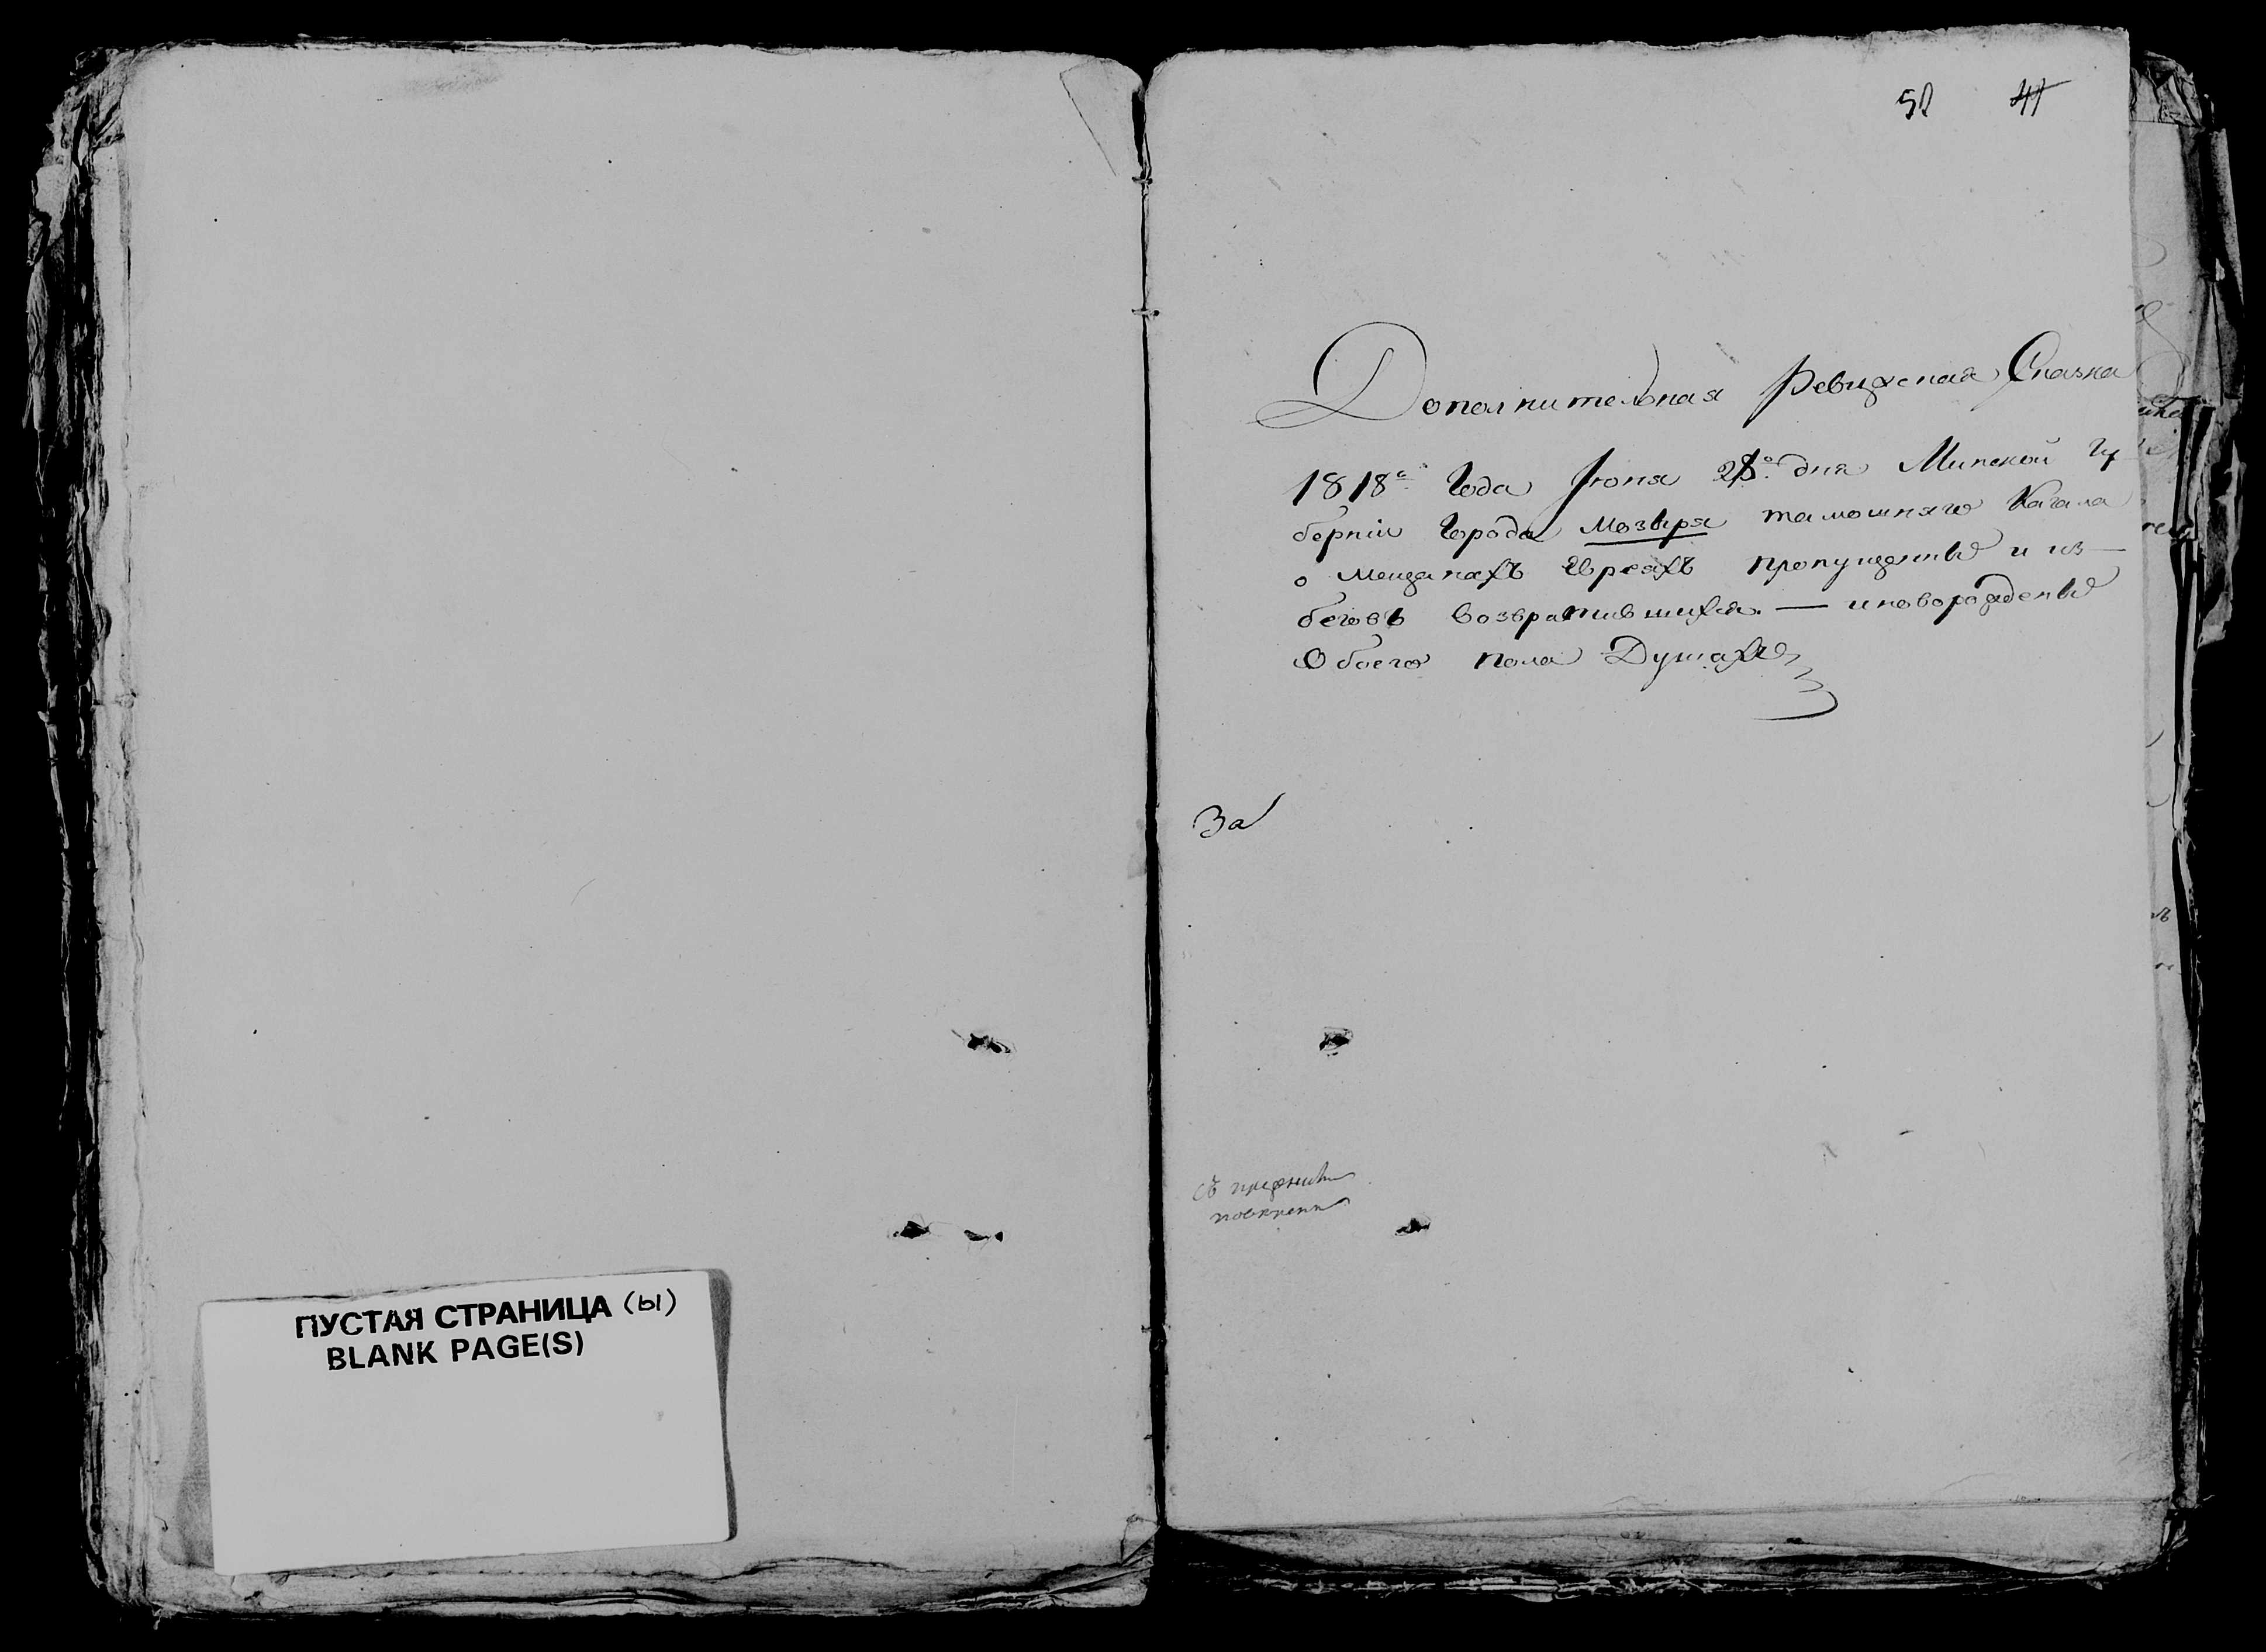 ПУСТАЯ СТРАНИЦА (ы)
BLANK PAGE(S)
52 41
Дополнительная Ревижская Сказка
1818го Года Июня 28го дня Минской гу
берніи Города Мозыря тамошняго Кагала
о мещанахъ Евреяхъ пропущенные и из—
беговъ возвратившихся. — и новорожденые
Обоего пола Душахъ
За